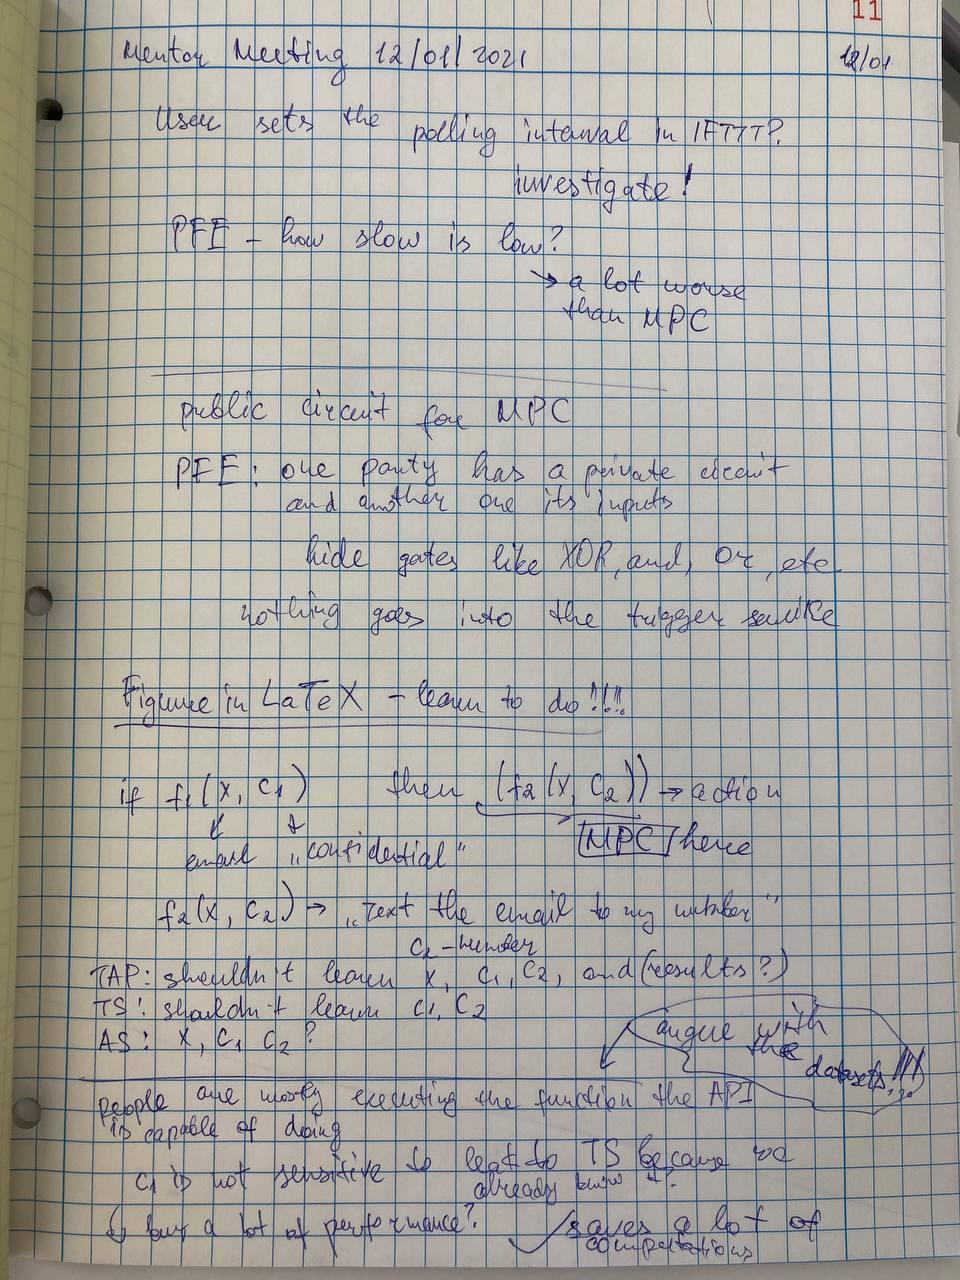 11
Mentor Meeting 12/01/2021
12/01
User sets the polling interval in IFTTT?
investigate!
PFE - how slow is low?
→ a lot worse
than MPC
public circuit for MPC
PFE: one party has a private circuit
and another one its inputs
hide gates like XOR, and, or, etc
nothing goes into the trigger service
Figure in LaTeX - learn to do!!!!
if f1(x, c1) then (f2(x, c2)) → action
email „confidential“ MPC here
f2(x, c2) → „Text the email to my number“
c2 - number
TAP: shouldn't learn x, c1, c2, and (results?)
TS: shouldn't learn c1, c2
AS: x, c1 c2 ?
argue with
the
datasets!!!
People are mostly executing the function the API
is capable of doing
c1 is not sensitive to leak to TS because we
already know it?
↳ buy a lot of performance?
✓ saves a lot of
computations